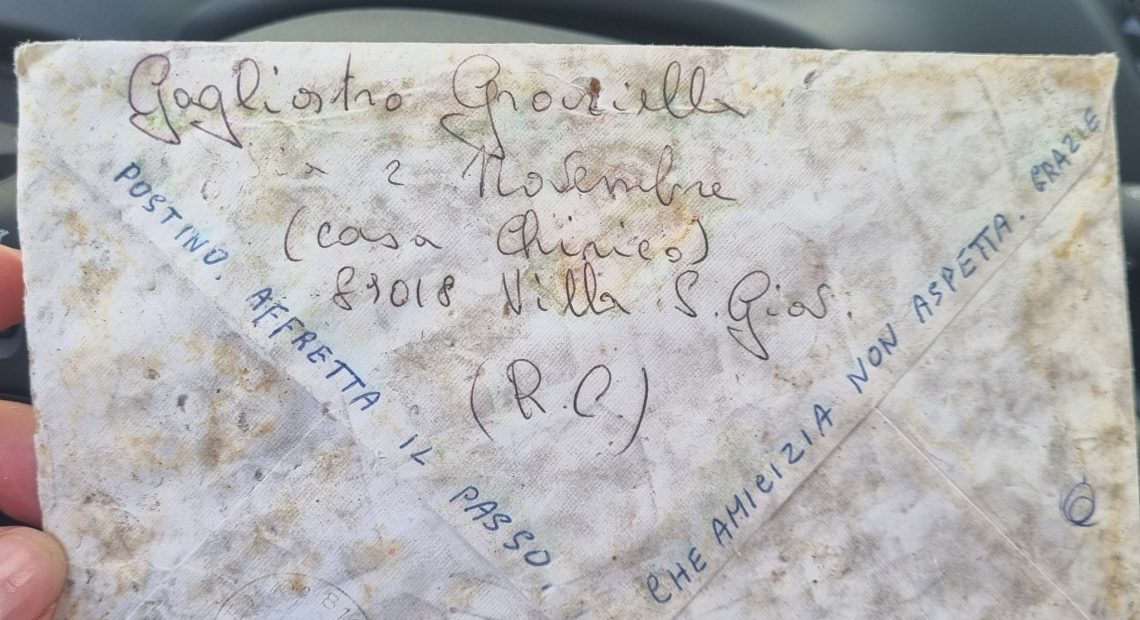 Gagliostro Graziella
Via 2 Novembre
(casa Chirico)
89018 Villa S. Giov.
(R.C.)
POSTINO. AFFRETTA IL PASSO.
CHE AMICIZIA NON ASPETTA. GRAZIE